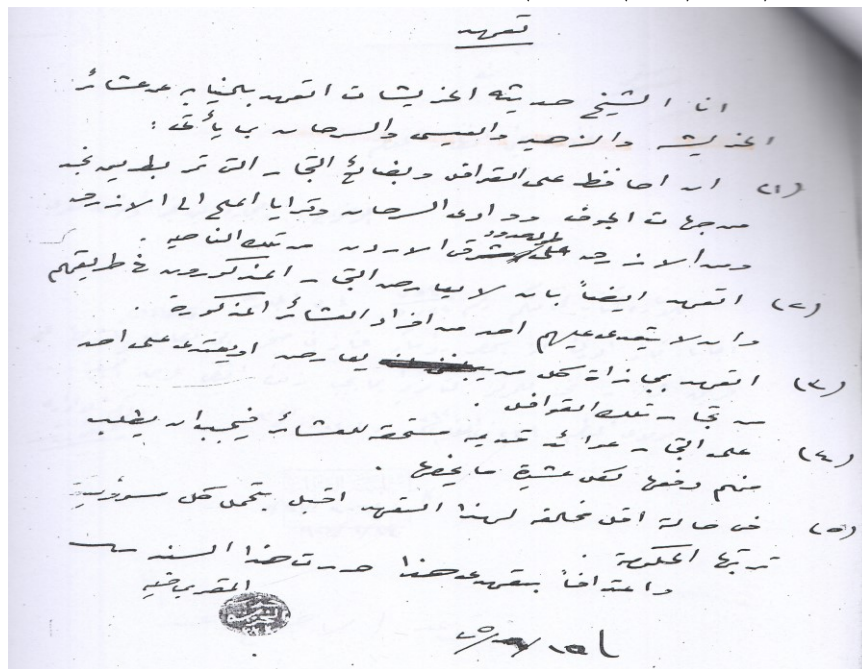 تعهد
انا الشيخ حديثه الخريشا اتعهد بالنيابه عن عشائر
الخريشه والزهير والعيسى والسرحان بما يأتي :
(١) ان احافظ على القوافل وبضائع التجار التي تمر بطريق نجد
من جهات الجوف ووادي السرحان وقرايا الملح الى الازرق
ومن الازرق الحدود شرقي الاردن من تلك الناحيه .
(٢) اتعهد ايضاً بان لا يعارض التجار المذكورون في طريقهم
وان لا يتعدى عليهم احد من افراد العشائر المذكورة .
(٣) اتعهد بمجازاة كل من يعارض او يعتدي على احد
من تجار تلك القوافل
(٤) على التجار عوائد قديمه مستحقه للعشائر فيجب ان يطلب
منهم دفعها لكل عشيرة ما يخصها .
(٥) في حالة اقل مخالفه لهذا التعهد اقبل بتحمل كل مسؤولية
ترتبها الحكومة .
واعترافاً بتعهدي هذا حررت هذا السند
المقر بما فيه